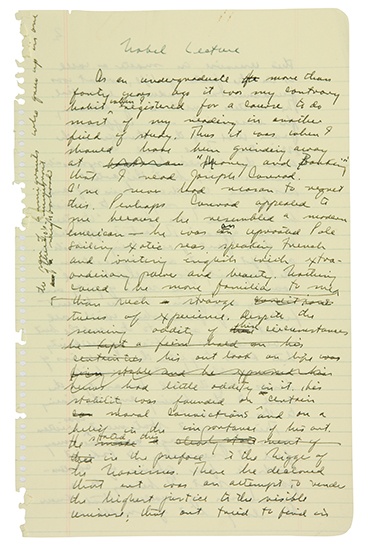 Nobel Lecture
As an undergraduate more than
forty years ago it was my contrary
habit when registered for a course to do
most of my reading in another
field of study. Thus it was when I
should have been grinding away
at "Money and Banking"
that I read Joseph Conrad.
I've never had reason to regret
this. Perhaps Conrad appealed to
me because he resembled a modern
American - he was an uprooted Pole
sailing exotic seas, speaking French
and writing English with extra-
ordinary power and beauty. Nothing
could be more familiar to me
than such strange
turns of experience. Despite the
seeming oddity of circumstances,
he kept a firm hand on his
his outlook on life was
had little oddity in it, his
stability was founded on certain
moral convictions and on a
belief in the importance of his art.
the stated this
in the preface to the Nigger of
the Narcissus. There he declared
that art was an attempt to render
the highest justice to the visible
universe, that art tried to find in
immigrants who grew up in one